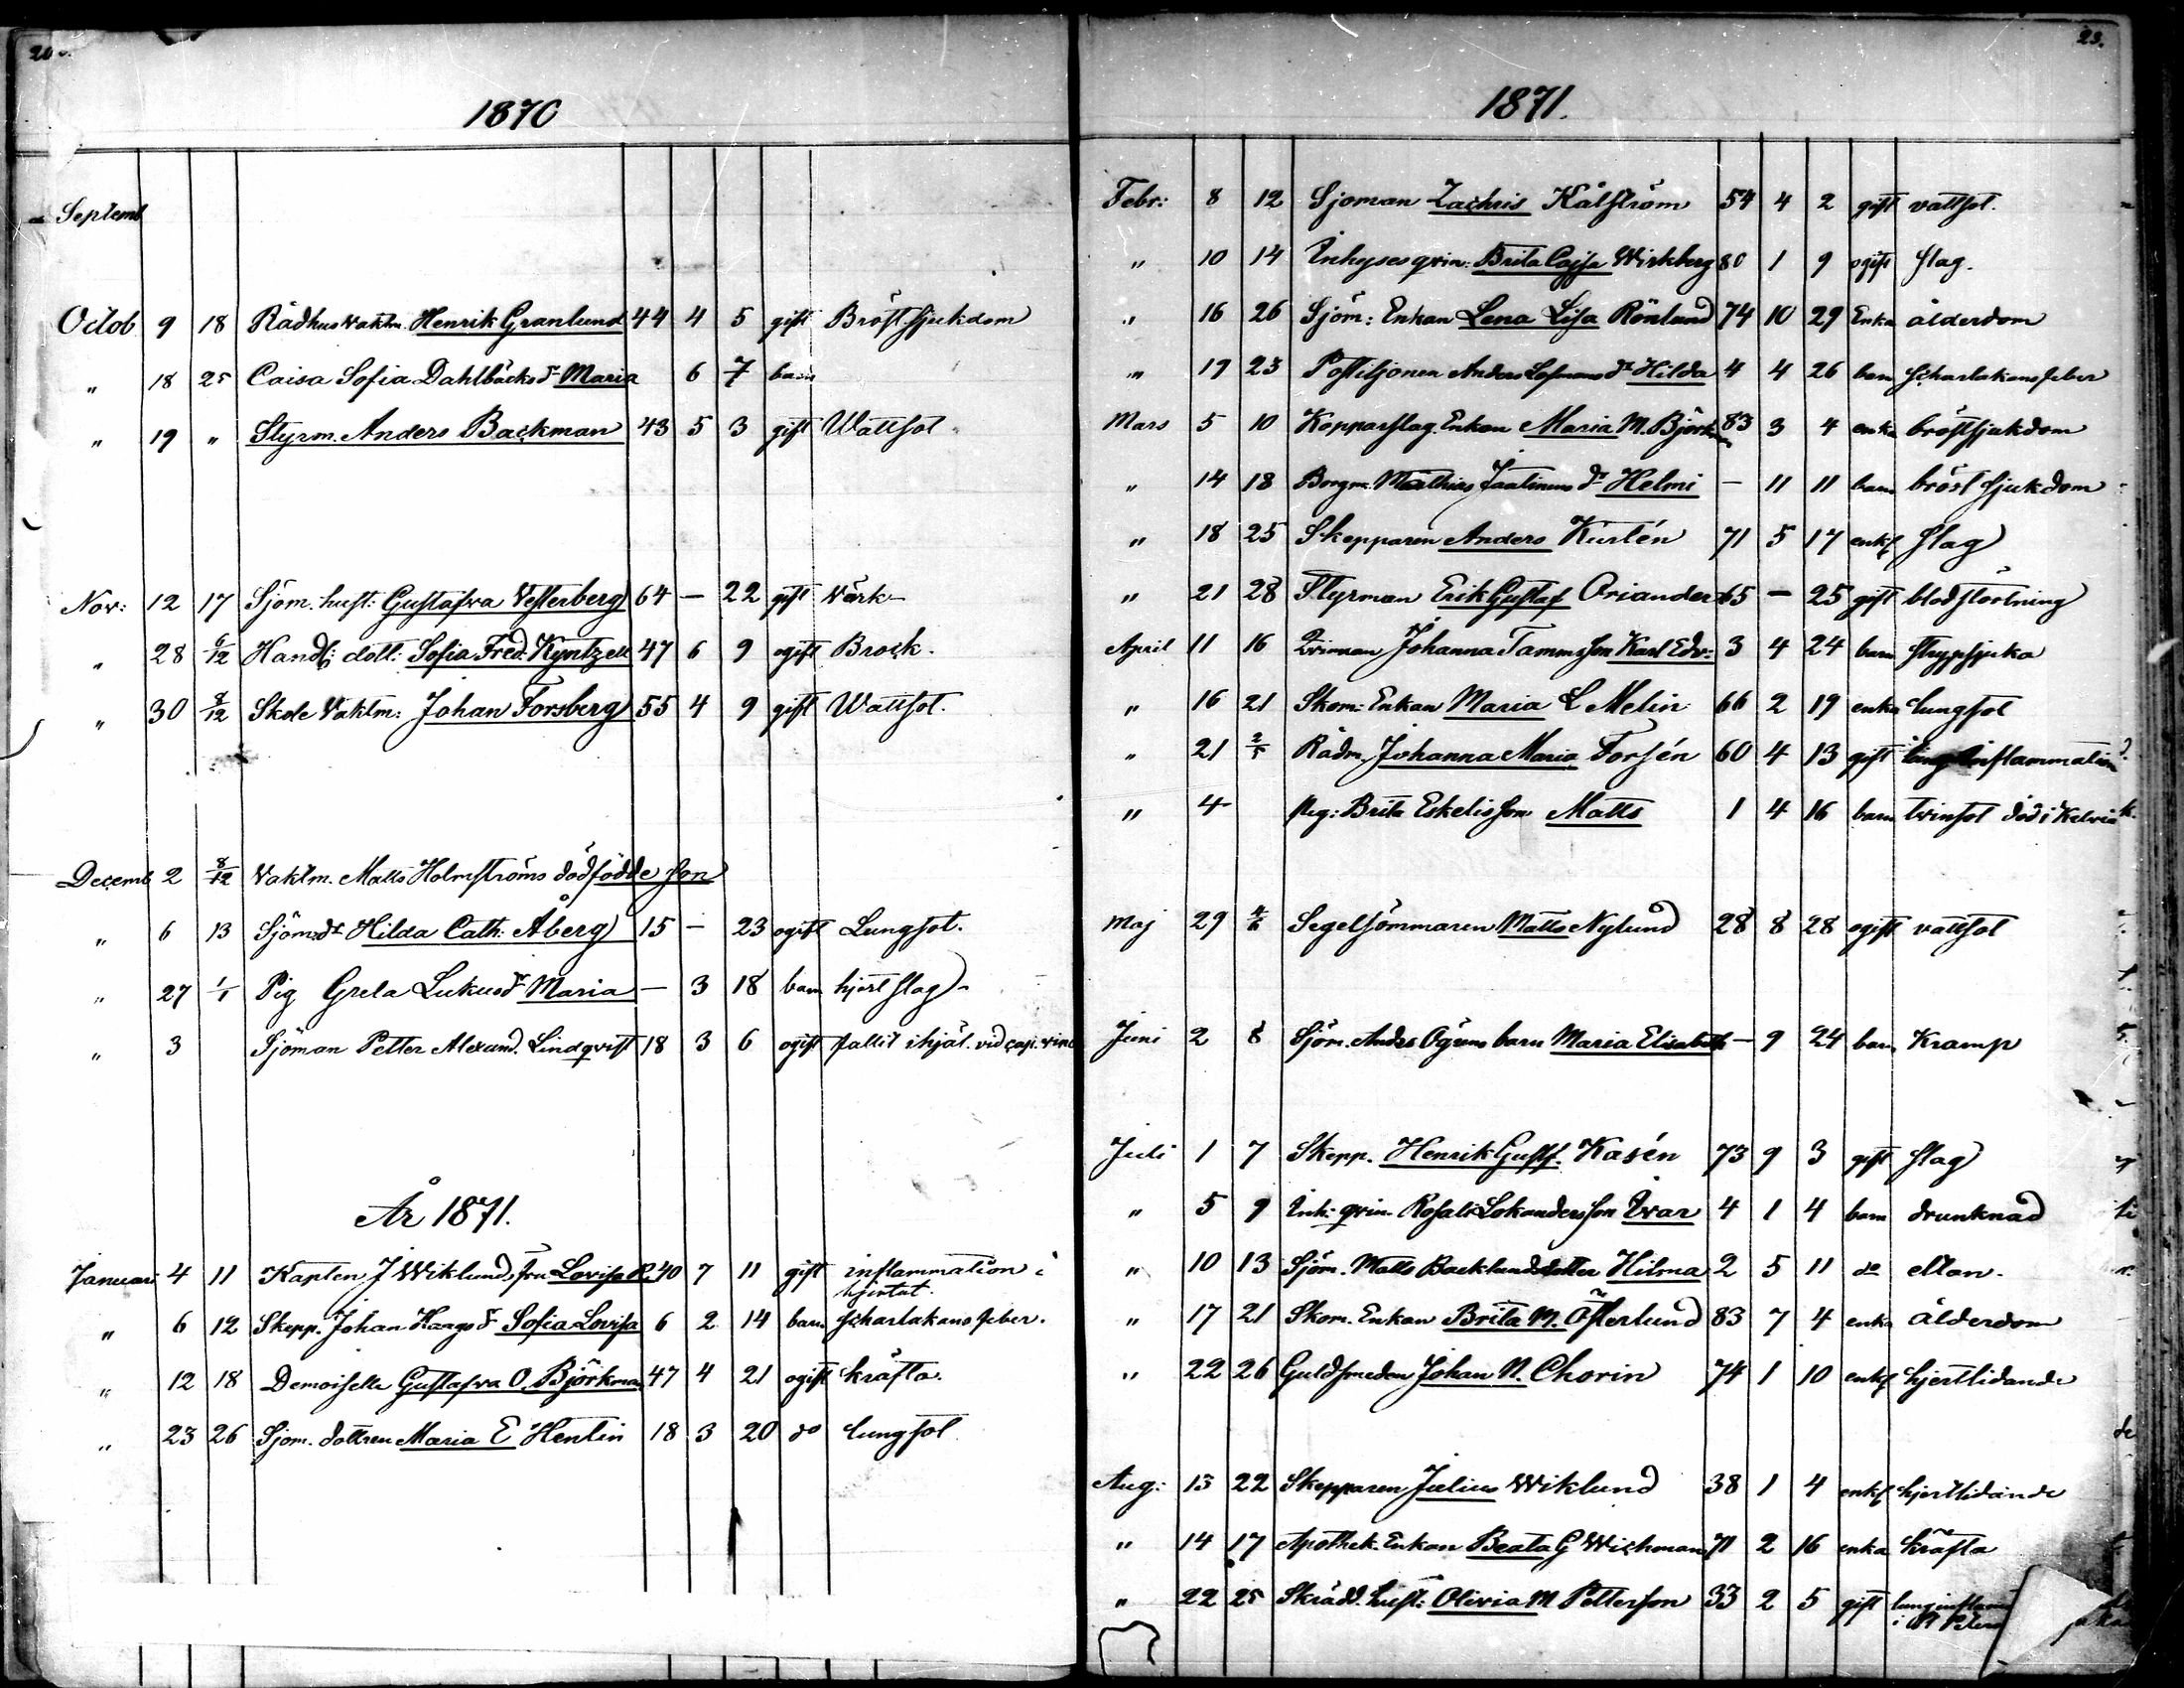 1870
Septemb
Octob 9 18 Rådhusvaktm. Henrik Granlund 44 4 5 gift Bröstsjukdom
" 18 25 Caisa Sofia Dahlbäcks dr Maria 6 7 barn
" 19 " Styrm. Anders Backman 43 5 3 gift Wattsot
Nov: 12 17 Sjöm. hust: Gustafva Vesterberg 64 – 22 gift Värk
" 28 6/12 Handl: dott: Sofia Fred. Kyntzell 47 6 9 ogift Brock.
" 30 8/12 Skole Vaktm: Johan Forsberg 55 4 9 gift Wattsot.
Decemb 2 8/12 Vaktm. Matts Holmströms dödfödde son
" 6 13 Sjöm: dr Hilda Cath: Åberg 15 – 23 ogift Lungsot.
" 27 1/1 Pig Greta Lukus dr Maria – 3 18 barn hjertslag
" 3 Sjöman Petter Alexand. Lindqvist 18 3 6 ogift fallit ihjäl vid
År 1871.
Januari 4 11 Kapten J Wiklunds fru Lovisa R. 40 7 11 gift inflammation i
hjertat.
" 6 12 Skepp. Johan Haags dr Sofia Lovisa 6 2 14 barn scharlakansfeber.
" 12 18 Demoiselle Gustafva O. Björkman 47 4 21 ogift kräfta.
" 23 26 Sjöm. dottren Maria E Hentin 18 3 20 do lungsot
23.
1871.
Febr: 8 12 Sjöman Zachris Kålström 54 4 2 gift vattsot.
" 10 14 Inhysesqvin: Brita Cajsa Wirkberg 80 1 9 ogift slag.
" 16 26 Sjöm: Enkan Lena Lisa Rönlund 74 10 29 Enka ålderdom
" 19 23 Postiljonen Anders Lofmans dr Hilda 4 4 26 barn scharlakansfeber
Mars 5 10 Kopparslag. Enkan Maria M. Björkm 83 3 4 enka bröstsjukdom
" 14 18 Borgm. Mathias Jaatinens dr Helmi – 11 11 barn bröstsjukdom
" 18 25 Skepparen Anders Kurtén 71 5 17 enkl slag
" 21 28 Styrman Erik Gustaf Oriander 65 – 25 gift blodstörtning
April 11 16 Qvinnan Johanna Tamms son Karl Edv: 3 4 24 barn strypsjuka
" 16 21 Skom: Enkan Maria L Melin 66 2 19 enka lungsot
" 21 2/5 Rådm. Johanna Maria Forsén 60 4 13 gift lunginflammation
" 4 Pig: Brita Eskelis son Matts 1 4 16 barn tvinsot död i Kelviå
Maj 29 4/6 Segelsömmaren Matts Nylund 28 8 28 ogift vattsot
Juni 2 8 Sjöm. Anders Ögrens barn Maria Elisabeth – 9 24 barn Kramp
Juli 1 7 Skepp. Henrik Gustf. Kasén 73 9 3 gift slag
" 5 9 Inh: qvin. Rosali Lokanders son Ivar 4 1 4 barn drunknad
" 10 13 Sjöm. Matts Backlunds dotter Hilma 2 5 11 do eltan.
" 17 21 Skom. Enkan Brita M. Österlund 83 7 4 enka ålderdom
" 22 26 Guldsmeden Johan N. Chorin 74 1 10 enkl hjertlidande
Aug: 13 22 Skepparen Julius Wiklund 38 1 4 enkl hjertlidande
" 14 17 Apothek. Enkan Beata G Wichman 71 2 16 enka kräfta
" 22 25 Skrädd. hust: Olivia M Petterson 33 2 5 gift